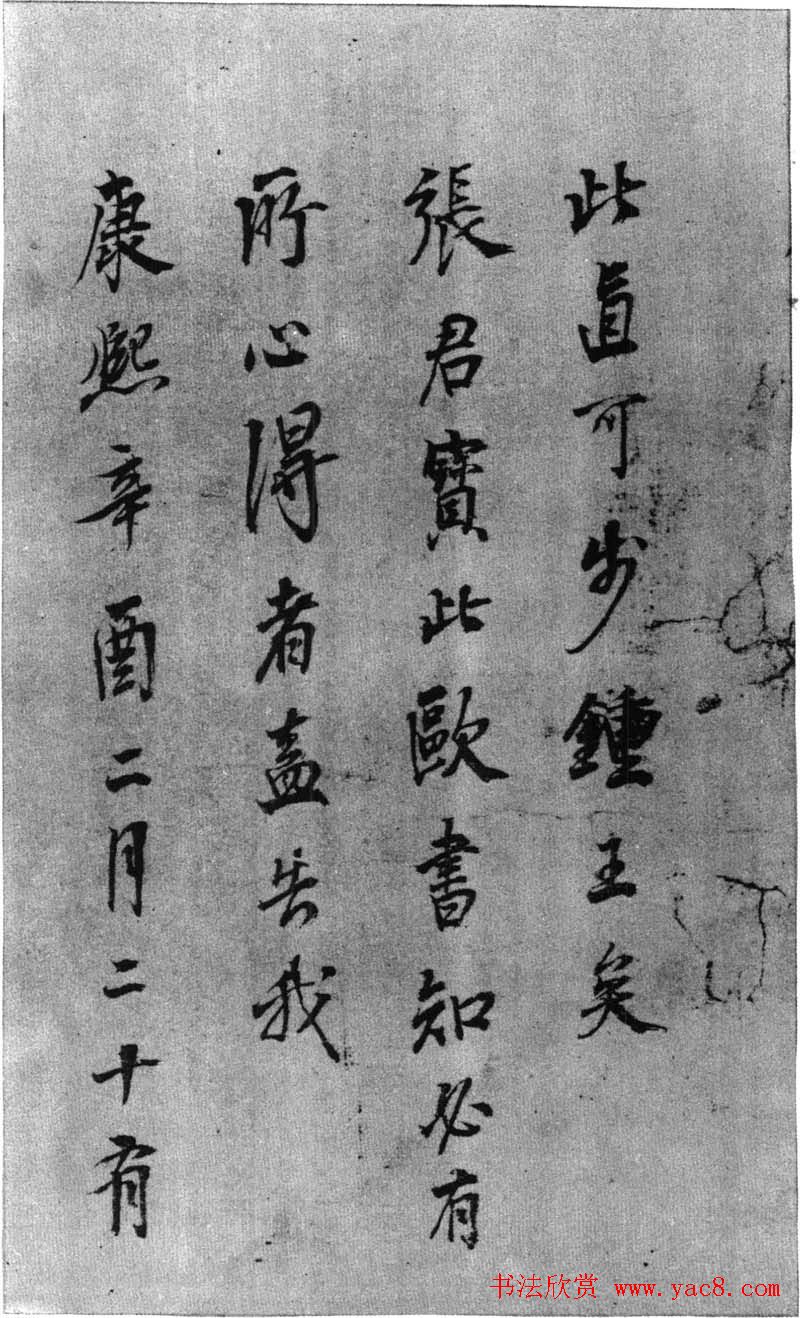 此直可步鍾王矣
張君寶此歐書知必有
所心得者盍告我
康熙辛酉二月二十有
书法欣赏 www.yac8.com